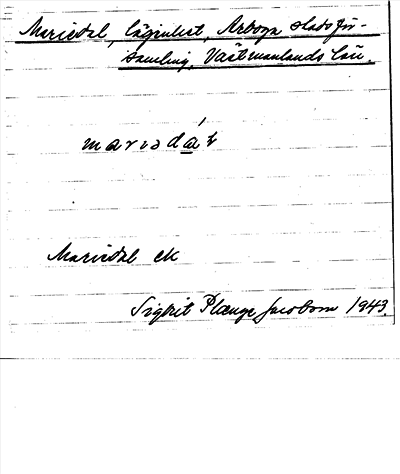 Mariedal, lägenhet, Arboga stadsför-
samling, Västmanlands län.
maríədάt
Mariedal ek
Sigfrit Plænge Jacobson 1943.